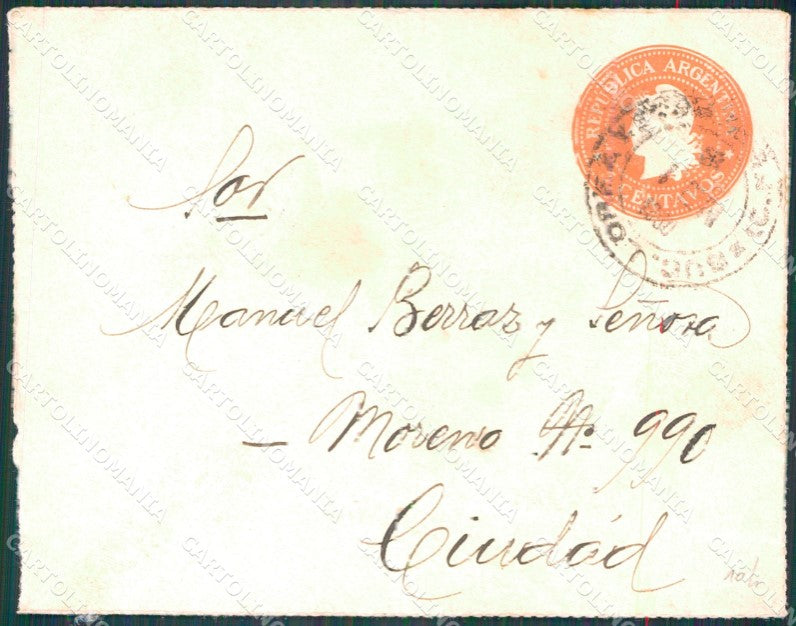 REPUBLICA ARGENTINA
CENTAVOS
Sor
Manuel Berraz y Señora
— Moreno No 990
Ciudád
CARTOLINOMANIA